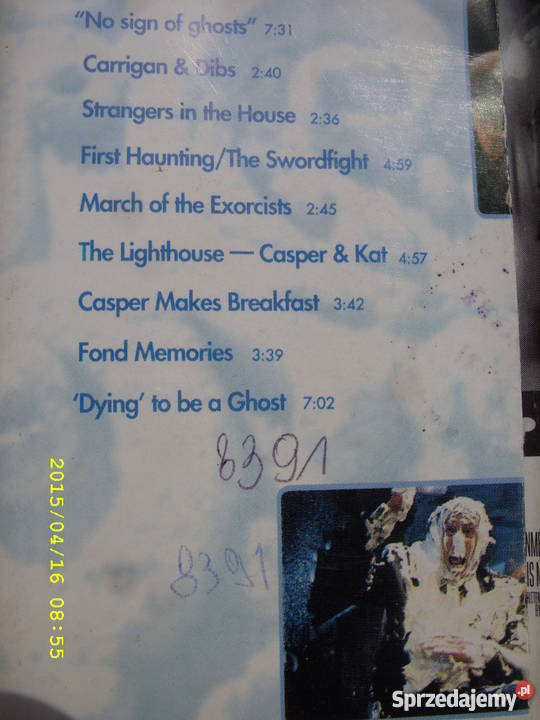 "No sign of ghosts" 7:31
Carrigan & Dibs 2:40
Strangers in the House 2:36
First Haunting/The Swordfight 4:59
March of the Exorcists 2:45
The Lighthouse — Casper & Kat 4:57
Casper Makes Breakfast 3:42
Fond Memories 3:39
'Dying' to be a Ghost 7:02
8391
8391
2015/04/16 08:55
Sprzedajemy.pl